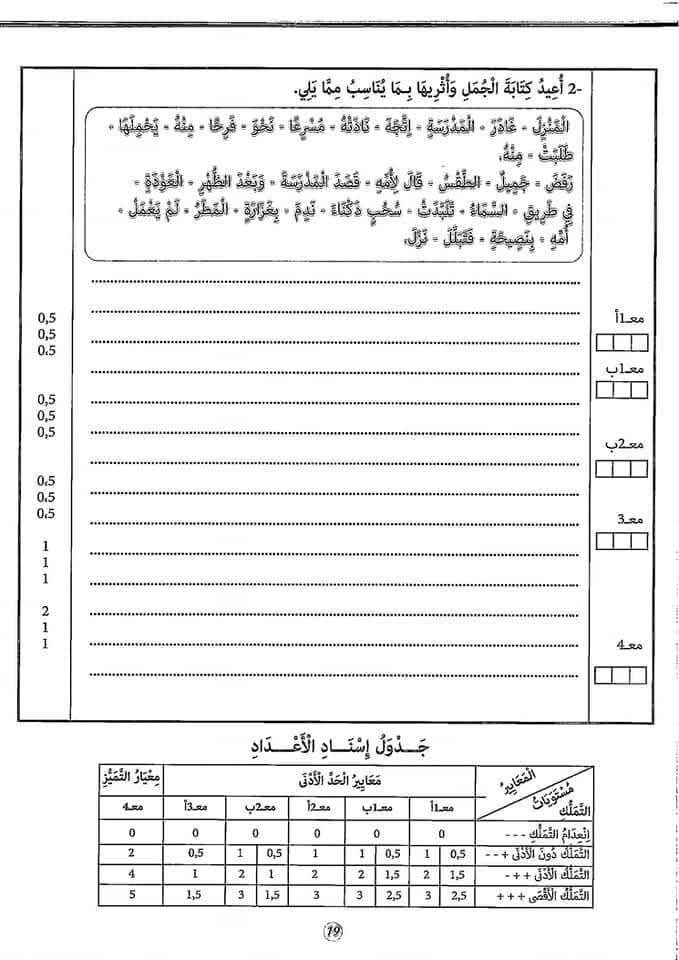 -2 أُعِيدُ كِتَابَةَ الْجُمَلِ وَأُثْرِيهَا بِمَا يُنَاسِبُ مِمَّا يَلِي.
الْمَنْزِلَ - غَادَرَ - الْمَدْرَسَةِ - اِتَّجَهَ - نَادَتْهُ - مُسْرِعًا - نَحْوَ - فَرِحًا - مِنْهُ - يَحْمِلَهَا -
طَلَبَتْ - مِنْهُ.
رَفَضَ - جَمِيلٌ - الطَّقْسُ - قَالَ لِأُمِّهِ - قَصَدَ الْمَدْرَسَةَ - وَبَعْدَ الظُّهْرِ - الْعَوْدَةِ -
فِي طَرِيقِ - السَّمَاءُ - تَلَبَّدَتْ - سُحُبٍ دَكْنَاءَ - نَدِمَ - بِغَزَارَةٍ - الْمَطَرُ - لَمْ يَعْمَلْ -
أُمِّهِ - بِنَصِيحَةِ - فَتَبَلَّلَ - نَزَلَ.
معـ1أ
0,5
0,5
0.5
معـ1ب
0,5
0,5
0,5
معـ2ب
0.5
0.5
0.5
معـ3
1
1
1
2
1
1
معـ4
جَـدْوَلُ إِسْنَـادِ الْأَعْـدَادِ
الْمَعَايِيرُ
مُسْتَوَيَاتُ
التَّمَلُّكِ
مَعَايِيرُ الْحَدِّ الْأَدْنَى
مِعْيَارُ التَّمَيُّزِ
معـ1أ معـ1ب معـ2أ معـ2ب معـ3أ معـ4
اِنْعِدَامُ التَّمَلُّكِ - - - 0 0 0 0 0 0
التَّمَلُّكُ دُونَ الْأَدْنَى + - - 0,5 1 0,5 1 1 0,5 1 0,5 2
التَّمَلُّكُ الْأَدْنَى + + - 1,5 2 1,5 2 2 1 2 1 4
التَّمَلُّكُ الْأَقْصَى + + + 2,5 3 2,5 3 3 1,5 3 1,5 5
19